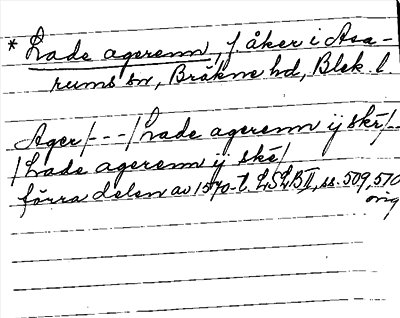 * Lade agerenn, f. åker i Asa-
rums sn, Bräkne hd, Blek. l.
Ager/---/Lade agerenn ij skē/--
/Lade agerenn ij skē/
förra delen av 1570-t. LSLB II, ss. 509, 510
orig